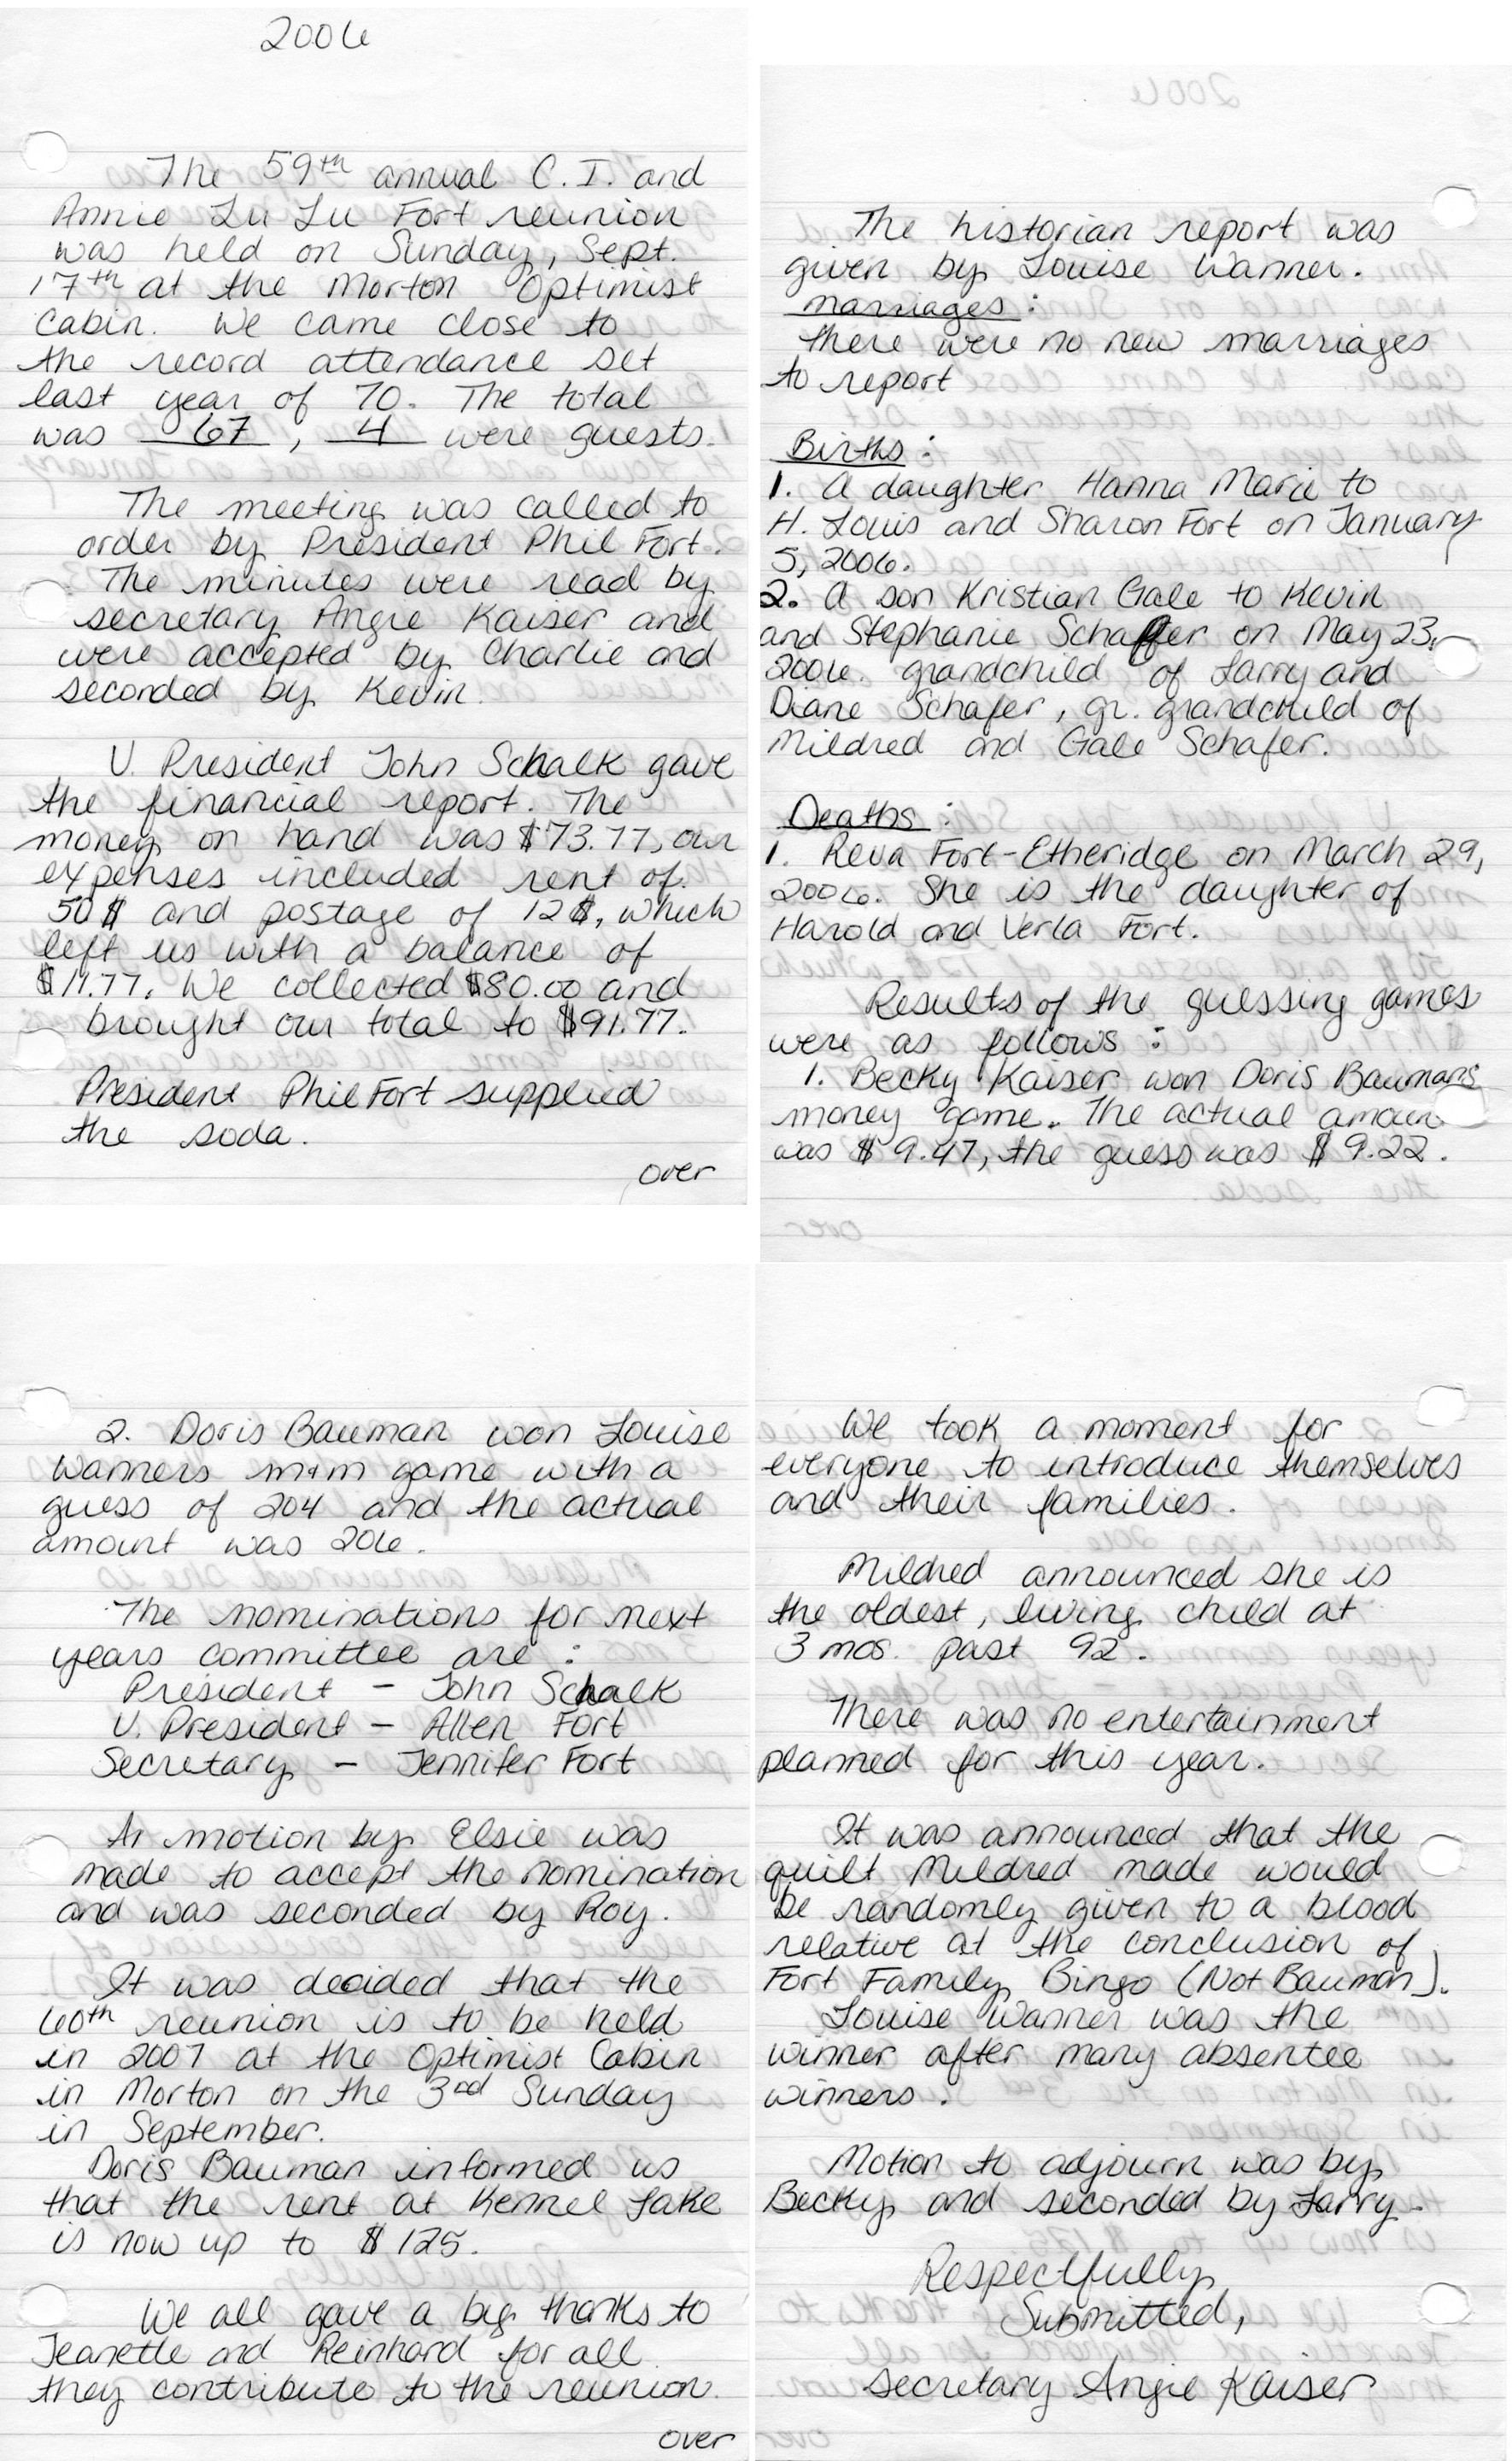 2006
The 59th annual C.I. and
Annie Lu Lu Fort reunion
was held on Sunday, Sept.
17th at the Morton Optimist
Cabin. We came close to
the record attendance set
last year of 70. The total
was 67, 4 were guests.
The meeting was called to
order by President Phil Fort.
The minutes were read by
secretary Angie Kaiser and
were accepted by Charlie and
seconded by Kevin.
V. President John Schalk gave
the financial report. The
money on hand was $73.77, our
expenses included rent of
50$ and postage of 12$, which
left us with a balance of
$11.77. We collected $80.00 and
brought our total to $91.77.
President Phil Fort supplied
the soda.
over
The historian report was
given by Louise Wanner.
marriages:
there were no new marriages
to report
Births:
1. A daughter Hanna Marie to
H. Louis and Sharon Fort on January
5, 2006.
2. A son Kristian Gale to Kevin
and Stephanie Schaffer on May 23,
2006. grandchild of Larry and
Diane Schafer, gr. grandchild of
Mildred and Gale Schafer.
Deaths:
1. Reva Fort-Etheridge on March 29,
2006. She is the daughter of
Harold and Verla Fort.
Results of the guessing games
were as follows:
1. Becky Kaiser won Doris Baumans
money game. The actual amoun
was $9.47, the guess was $9.22.
2. Doris Bauman won Louise
Wanners m+m game with a
guess of 204 and the actual
amount was 206.
The nominations for next
years committee are:
President - John Schalk
V. President - Allen Fort
Secretary - Jennifer Fort
A motion by Elsie was
made to accept the nomination
and was seconded by Roy.
It was decided that the
60th reunion is to be held
in 2007 at the Optimist Cabin
in Morton on the 3rd Sunday
in September.
Doris Bauman informed us
that the rent at Kennel Lake
is now up to $125.
We all gave a big thanks to
Jeanette and Reinhard for all
they contribute to the reunion.
over
We took a moment for
everyone to introduce themselves
and their families.
Mildred announced she is
the oldest, living child at
3 mos. past 92.
There was no entertainment
planned for this year.
It was announced that the
quilt Mildred made would
be randomly given to a blood
relative at the conclusion of
Fort Family Bingo (Not Bauman).
Louise Wanner was the
winner after many absentee
winners.
Motion to adjourn was by
Becky and seconded by Larry.
Respectfully
Submitted,
Secretary Angie Kaiser